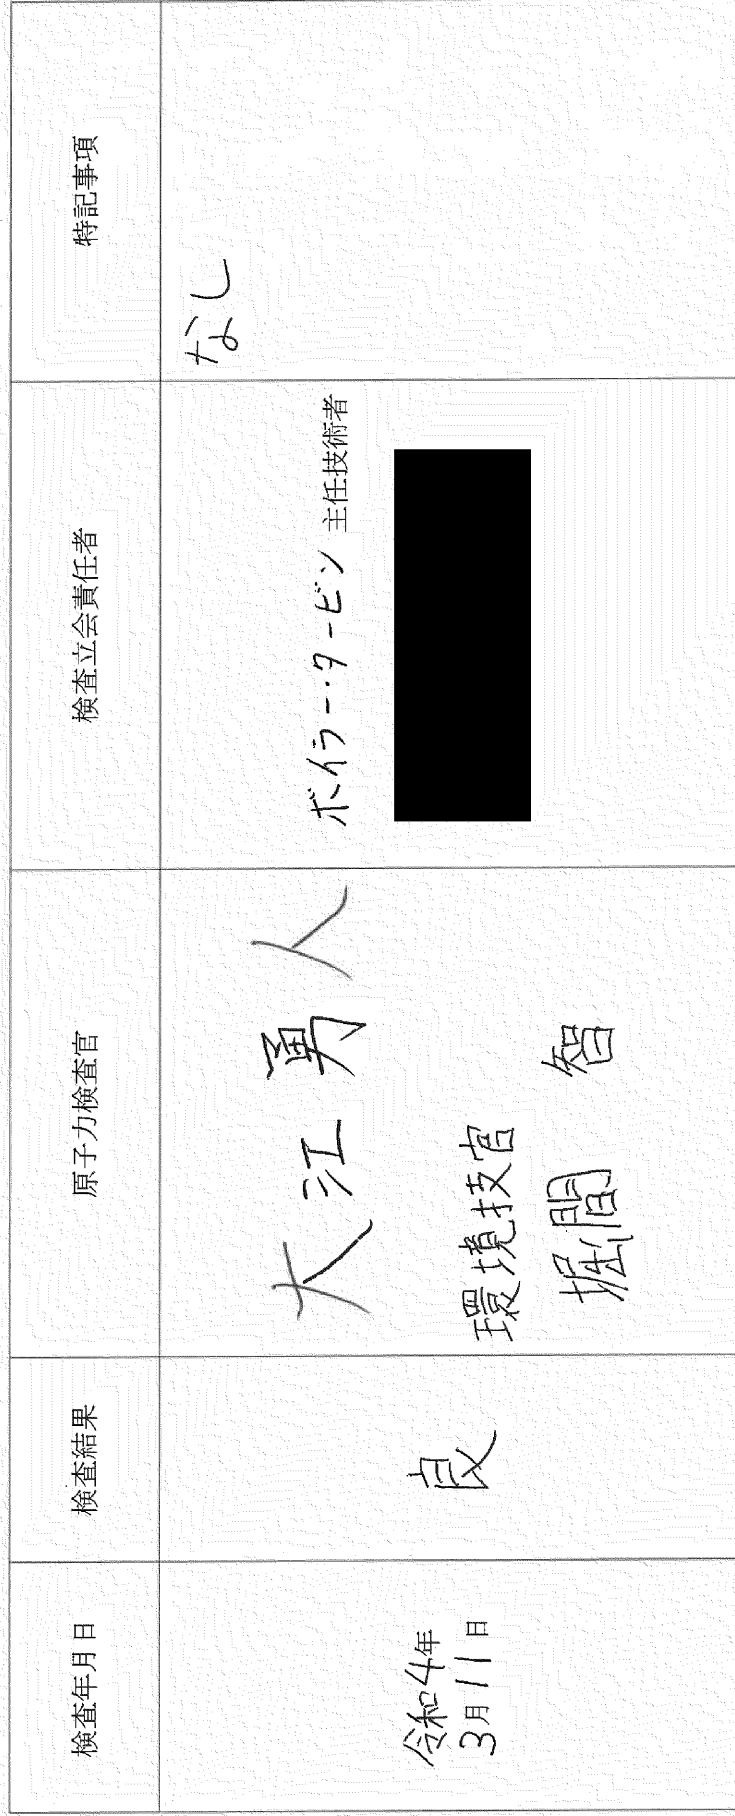 検査年月日
検査結果
原子力検査官
検査立会責任者
特記事項
令和4年
3月11日
良
大江勇人
環境技官
堀間 智
ボイラー・タービン 主任技術者
なし